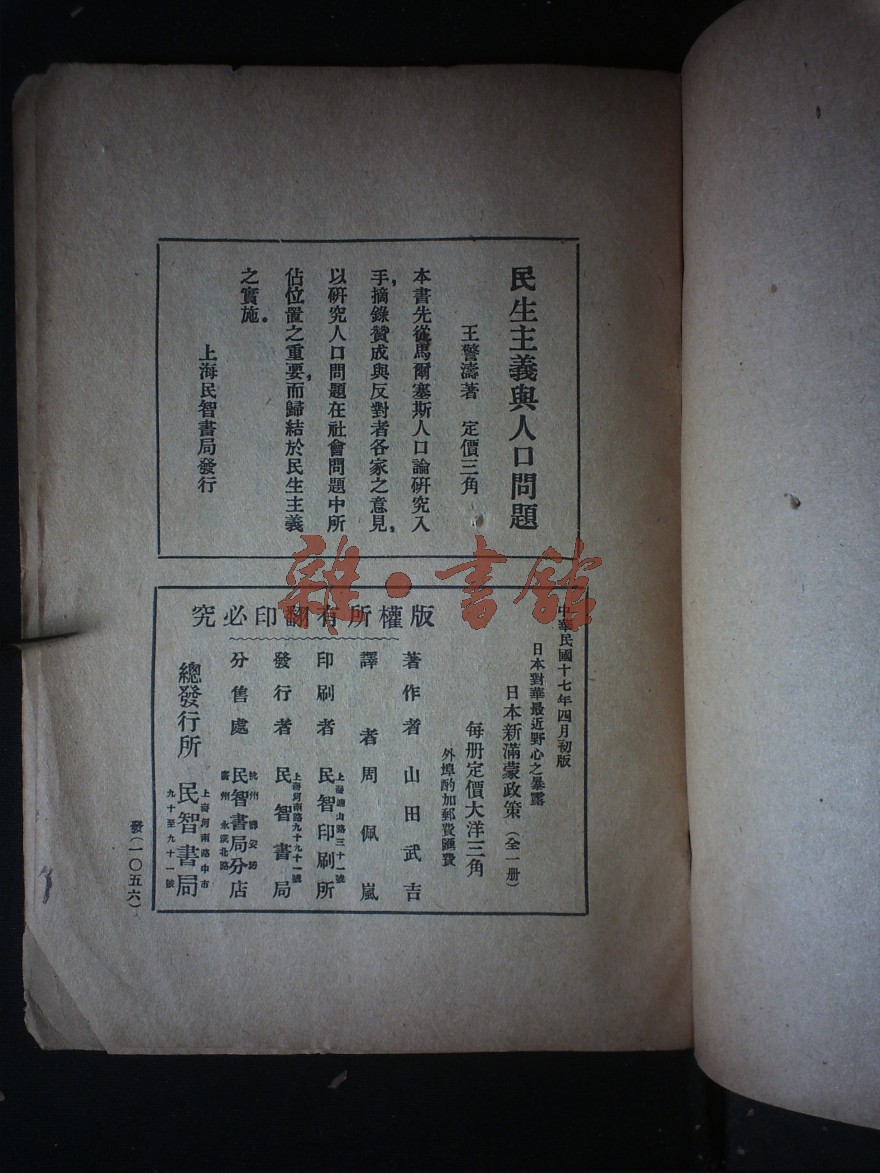 民生主義與人口問題
王警濤著 定價三角
本書先從馬爾塞斯人口論研究入
手,摘錄贊成與反對者各家之意見,
以研究人口問題在社會問題中所
佔位置之重要,而歸結於民生主義
之實施。
上海民智書局發行
雜·書館
中華民國十七年四月初版
日本對華最近野心之暴露
日本新滿蒙政策(全一册)
每册定價大洋三角
外埠酌加郵費匯費
究必印翻有所權版
著作者 山田武吉
譯者 周佩嵐
印刷者 民智印刷所
上海 山路三十一號
發行者 民智書局
上海河南路九十九十一號
分售處 民智書局分店
杭州
廣州 永漢北路
總發行所 民智書局
上海河南路中市
九十至九十一號
發(一〇五六)